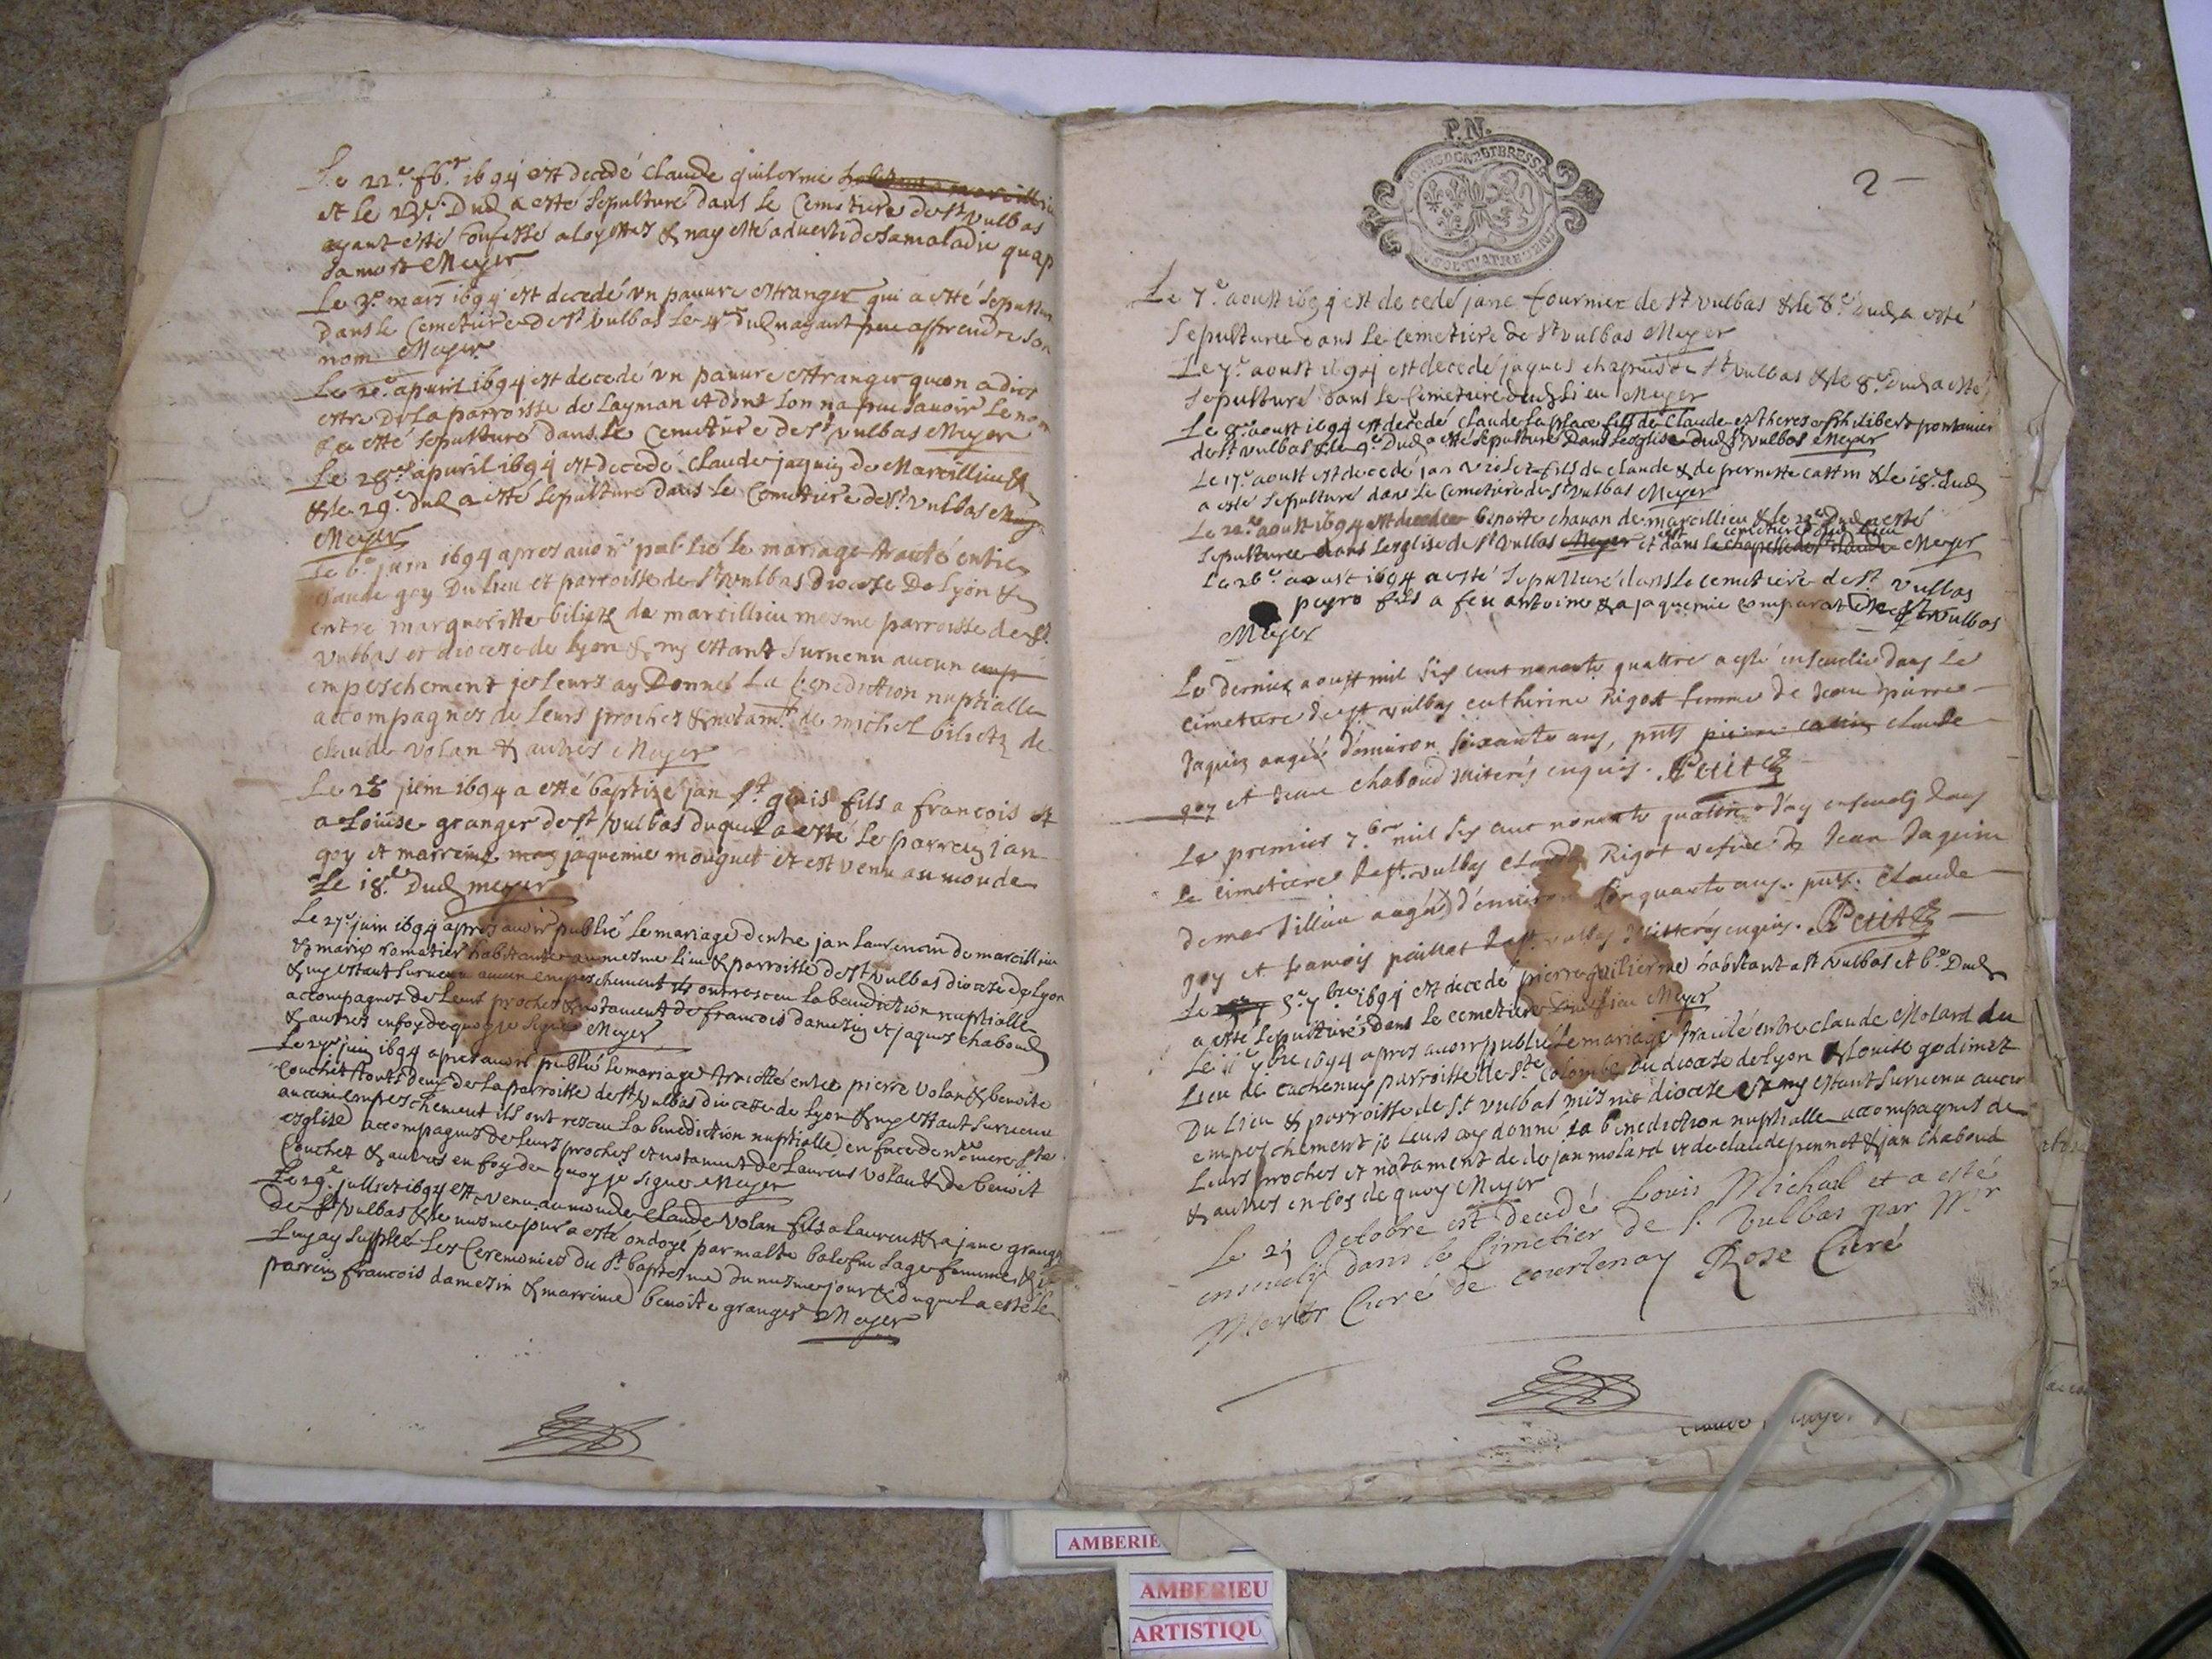 Le 22e fbr 1694 est decedé claude guilerme
et le 23e Dud a esté sepulturé dans le Cemetiere de st vulbas
ayant esté confessé a loyettes & nay esté adverti de sa maladie quap
sa mort Meyer
Le 3e mars 1694 est decedé vn pauure estranger qui a esté sepultur
dans le Cemetiere de st vulbas le 4e dud nayant peu apprendre son
nom Meyer
Le 22e apuril 1694 est decedé vn pauure estranger quon a dict
estre de la parroisse de Layman et dont lon na peu sauoir le nom
& a esté sepulturé dans le Cemetiere de st vulbas Meyer
Le 28e apuril 1694 est decedé claude jaquin de Marcillieu
& le 29e dud a esté sepulturé dans le Cemetiere de st vulbas
Meyer
Le 6e juin 1694 apres auoir publié le mariage traité entre
claude goy Du lieu et parroisse de st vulbas diocese De Lyon &
entre margueritte bilietz de marcillieu mesme parroisse de st
vulbas et diocese de lyon & ny estant suruenu aucun
empeschement je leurs ay Donné La benediction nuptialle
accompagnes de leurs proches & notamt de michel bilietz de
claude volan & autres Meyer
Le 28 juin 1694 a esté baptizé jan st genis fils a francois et
a Louise granger de st vulbas duquel a esté le parrein jan
goy et marreine jaquemie mouguet et est venu au monde
Le 18e Dud meyer
Le 27e juin 1694 apres auoir publié le mariage dentre jan laurencin de marcillieu
& marie romatier habitante au mesme lieu & parroisse de st vulbas diocese de Lyon
& ny estant suruenu aucun empeschement ils ont resceu la benediction nuptialle
accompagnes de leurs proches & notament de francois damezin et jaques chaboud
& autres en foy de quoy je signe Meyer
Le 29e juin 1694 apres auoir publié le mariage traitté entre pierre volan & benoite
Couchet touts deux de la parroisse de st vulbas diocese de Lyon & ny estant suruenu
aucun empeschement ils ont resceu la benediction nuptialle en face de nre mere ste
esglise accompagnes de leurs proches et notament de Laurens volan & de benoit
Couchet & autres en foy de quoy je signe Meyer
Le 19e jullet 1694 est venu au monde Claude volan fils a laurens & a jane granger
de st vulbas & le mesme jour a esté ondoyé par malte sage femme & je
luy ay supplée les Ceremonies du st baptesme du mesme jour & duquel a esté le
parrein francois damezin & marreine benoite granger Meyer
P.N.
BOURG CAP DE BRESSE
2
Le 7e aoust 1694 est decedé jane fournier de st vulbas & le 8e dud a esté
sepulturee dans le cemetiere de st vulbas Meyer
Le 7e aoust 1694 est decedé jaques chapuis de st vulbas & le 8e dud a esté
sepulturé dans le Cemetiere dud lieu Meyer
Le 8e aoust 1694 est decedé claude laplace fils de Claude
de st vulbas & le 9e Dud a esté sepulturé Dans lesglise dud st vulbas Meyer
Le 17e aoust est decedé jan violet fils de claude & de pernette cattin & le 18e dud
a esté sepulturé dans le cemetiere de st vulbas Meyer
Le 22e aoust 1694 est decedee benoite chanan de marcillieu & le 23e Dud a esté
sepulturee dans lesglise de st vulbas Meyer et est dans le cemetiere dud lieu Meyer
Le 26e aoust 1694 a esté sepulturé dans le cemetiere de st vulbas
peyro fils a feu antoine & a jaquemie comparat de st vulbas
Meyer
Le dernier aoust mil six cent nonante quattre a esté enseuelie dans le
cimetiere de st vulbas catherine Rigot femme de Jean pierre
Jaquin aagée d'enuiron soixante ans, pnts claude
goy et Jean chaboud illiterés enquis. Petit
Le premier 7bre mil six cent nonante quattre J'ay enseuely dans
le cimetiere de st. vulbas Claude Rigot vefue de Jean Jaquin
de marsillieu aagée d'enuiron cinquante ans. pnts. Claude
goy et francois paillat de st. vulbas illitterés enquis. Petit
Le 5e 7bre 1694 est decedé pierre guilierme habitant a st vulbas et 6e Dud
a esté sepulturé dans le cemetiere dud lieu Meyer
Le 11e 7bre 1694 apres auoir publié le mariage traité entre claude Molard du
Lieu de cachenuy parroisse de Ste Colombe Du diocese de Lyon & Louise godimez
Du Lieu & parroisse de st vulbas mesme diocese et ny estant suruenu aucun
empeschement je leur ay donné la benediction nuptialle accompagnes de
Leurs proches et notament de jan molard et de claude pennet & jan Chaboud
& autres en foy de quoy Meyer
Le 24 Octobre est decedé Louis Michal et a esté
enseuely dans le Cimetier de S. Vulbas par Mr
Meyer Curé de courtenay Rose Curé
AMBERIE
AMBERIEU
ARTISTIQU